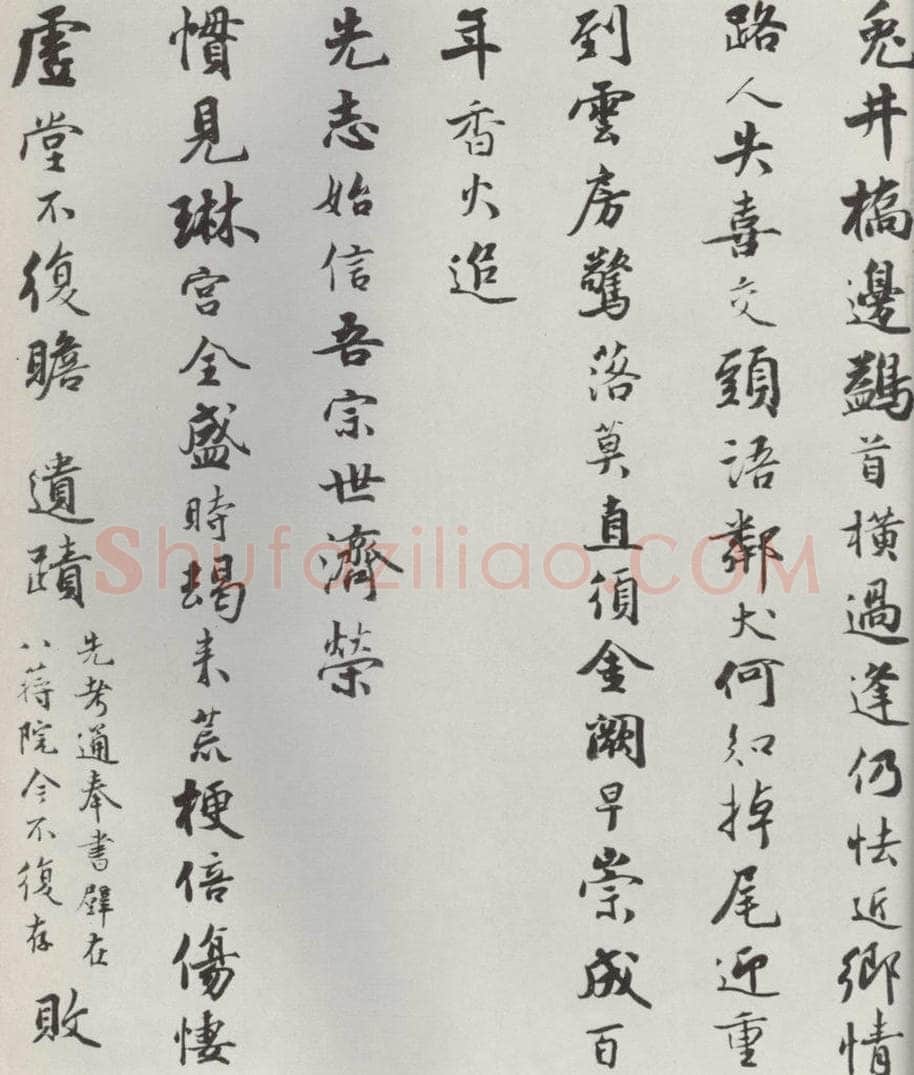 兎井橋邊鷁首橫過逢仍怯近鄉情
路人失喜交頭語鄰犬何知掉尾迎重
到雲房驚落莫直須金闕早崇成百
年香火追
先志始信吾宗世濟榮
慣見琳宮全盛時朅來荒梗倍傷悽
虛堂不復瞻 遺蹟
先考通奉書壁在
八蒋院今不復存
敗
Shufaziliao.COM